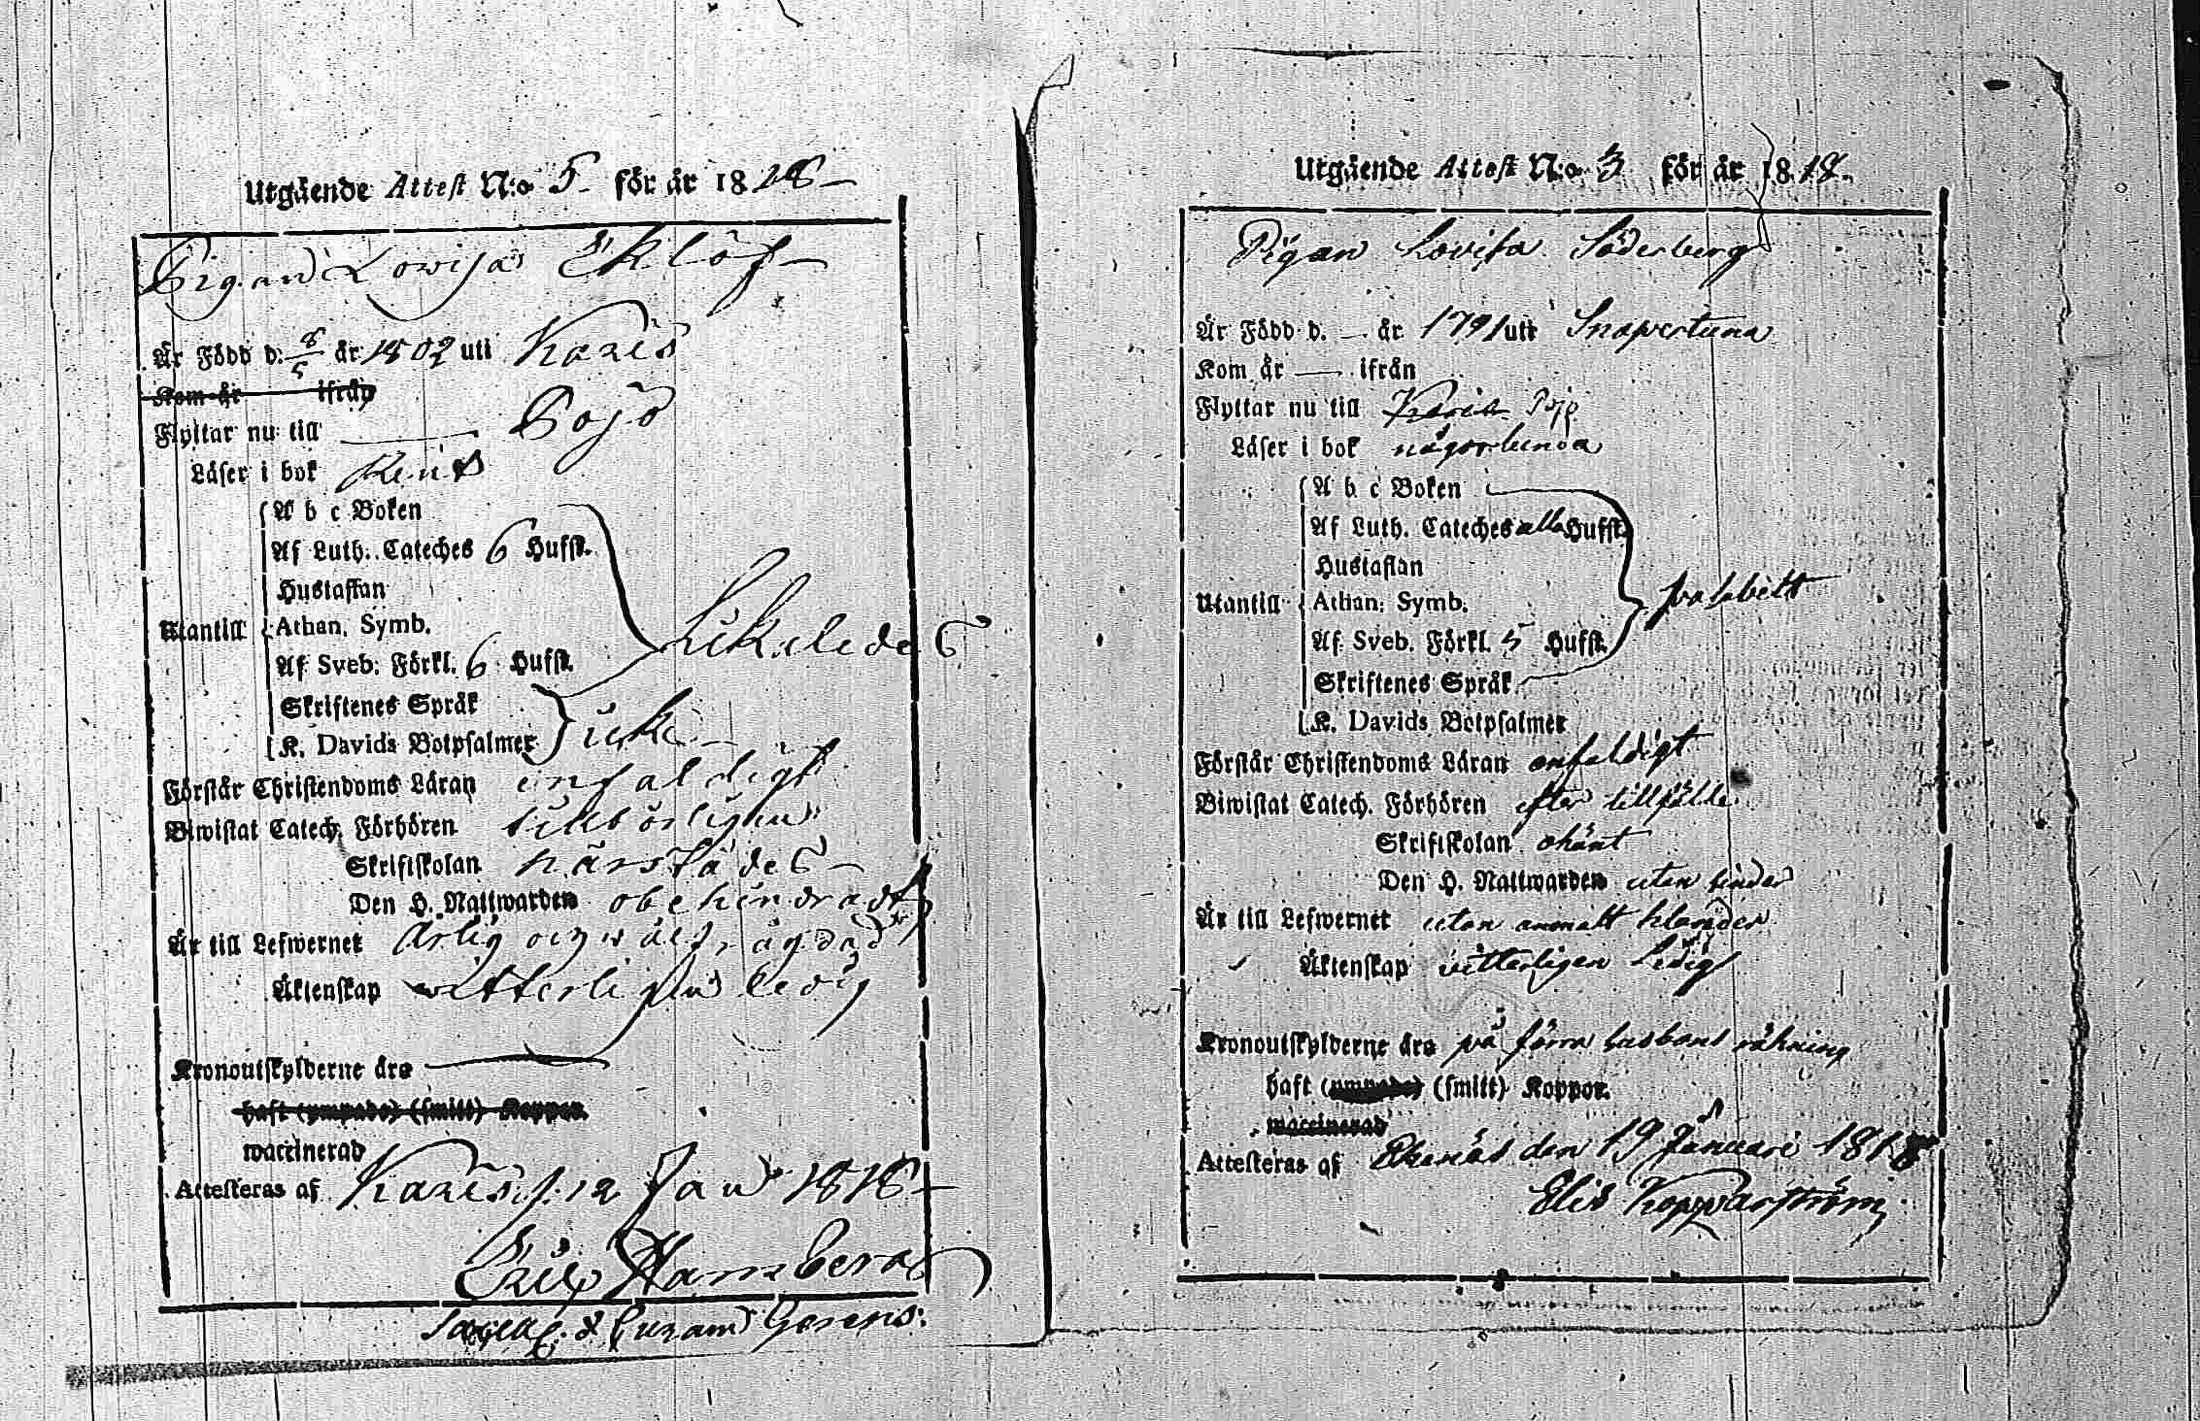 Utgående Attest N:o 5 för år 1818
Pigan Lovisa Eklöf
Är Född d. 8/5 år 1802 uti Karis
Kom år ifrån
Flyttar nu till Pojo
Läser i bok rent
A b c Boken
Af Luth. Cateches 6 Hufst.
Hustaflan
Utantill Athan. Symb. Likaledes
Af Sveb. Förkl. 6 Hufst.
Skriftenes Språk
K. Davids Botpsalmer icke
Förstår Christendoms Läran enfaldigt
Biwistat Catech. Förhören tillbörligen
Skriftskolan härstädes
Den H. Nattwarden obehindradt
Är till Lefwernet Ärlig och
Äktenskap witterligen ledig
Kronoutskylderne äro
haft (ympade) (smitt) Koppor.
waccinerad
Attesteras af Karis d. 12 Jan 1818
Eric
Utgående Attest N:o 3 för år 1818.
Pigan Lovisa Söderberg
Är Född d. — år 1791 uti Snapertuna
Kom år — ifrån
Flyttar nu till Karis Pojo
Läser i bok någorlunda
A b c Boken
Af Luth. Cateches alla Hufst.
Hustaflan
Utantill Athan. Symb. svagt
Af Sveb. Förkl. 5 Hufst.
Skriftenes Språk
K. Davids Botpsalmer
Förstår Christendoms Läran enfaldigt
Biwistat Catech. Förhören efter tillfälle
Skriftskolan okänt
Den H. Nattwarden utan hinder
Är till Lefwernet utan anmält klander
Äktenskap vitterligen Ledig
Kronoutskylderne äro på förra husbonds räkning
haft (ympade) (smitt) Koppor.
waccinerad
Attesteras af Ekenäs den 19 Januari 1818
Elis